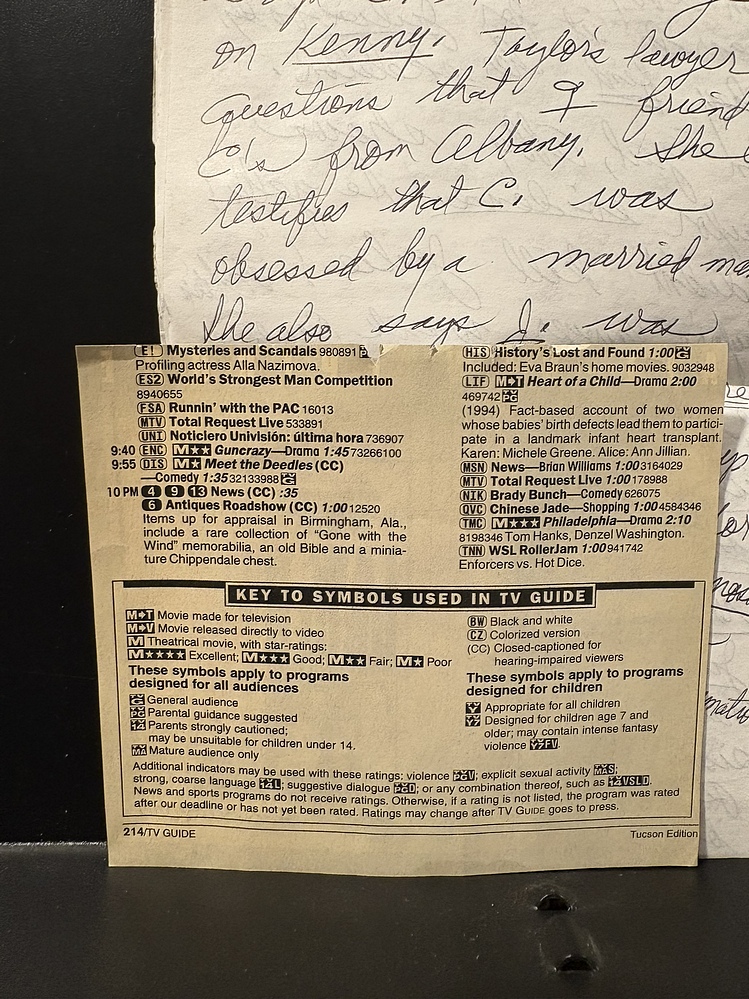 on Kenny. Taylor's lawyer
questions that friend
C's from Albany. She
testifies that C. was
obsessed by a married
She also says J. was
E! Mysteries and Scandals 980891
Profiling actress Alla Nazimova.
ES2 World's Strongest Man Competition
8940655
FSA Runnin' with the PAC 16013
MTV Total Request Live 533891
UNI Noticiero Univisión: última hora 736907
9:40 ENC M★★ Guncrazy—Drama 1:45 73266100
9:55 DIS M★ Meet the Deedles (CC)
—Comedy 1:35 32133988 G
10 PM 4 9 13 News (CC) :35
6 Antiques Roadshow (CC) 1:00 12520
Items up for appraisal in Birmingham, Ala.,
include a rare collection of "Gone with the
Wind" memorabilia, an old Bible and a minia-
ture Chippendale chest.
HIS History's Lost and Found 1:00 G
Included: Eva Braun's home movies. 9032948
LIF M▸T Heart of a Child—Drama 2:00
469742 PG
(1994) Fact-based account of two women
whose babies' birth defects lead them to partici-
pate in a landmark infant heart transplant.
Karen: Michele Greene. Alice: Ann Jillian.
MSN News—Brian Williams 1:00 3164029
MTV Total Request Live 1:00 178988
NIK Brady Bunch—Comedy 626075
QVC Chinese Jade—Shopping 1:00 4584346
TMC M★★★ Philadelphia—Drama 2:10
8198346 Tom Hanks, Denzel Washington.
TNN WSL RollerJam 1:00 941742
Enforcers vs. Hot Dice.
KEY TO SYMBOLS USED IN TV GUIDE
M▸T Movie made for television
M▸V Movie released directly to video
M Theatrical movie, with star-ratings:
M★★★★ Excellent; M★★★ Good; M★★ Fair; M★ Poor
These symbols apply to programs
designed for all audiences
G General audience
PG Parental guidance suggested
14 Parents strongly cautioned;
may be unsuitable for children under 14.
MA Mature audience only
BW Black and white
CZ Colorized version
(CC) Closed-captioned for
hearing-impaired viewers
These symbols apply to programs
designed for children
Y Appropriate for all children
Y7 Designed for children age 7 and
older; may contain intense fantasy
violence Y7FV.
Additional indicators may be used with these ratings: violence PGV; explicit sexual activity MAS;
strong, coarse language 14L; suggestive dialogue PGD; or any combination thereof, such as 14VSLD.
News and sports programs do not receive ratings. Otherwise, if a rating is not listed, the program was rated
after our deadline or has not yet been rated. Ratings may change after TV GUIDE goes to press.
214/TV GUIDE
Tucson Edition